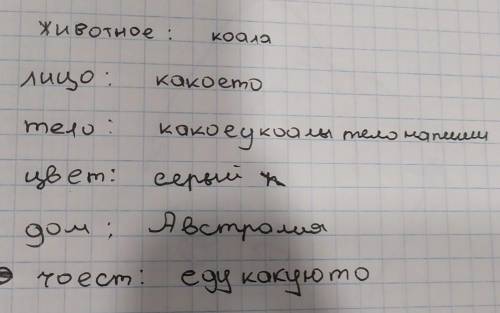 животное: коала
лицо: какоето
тело: какоеукоалы тело напиши
цвет: серый
дом: Австролия
чоест: еду какуюто